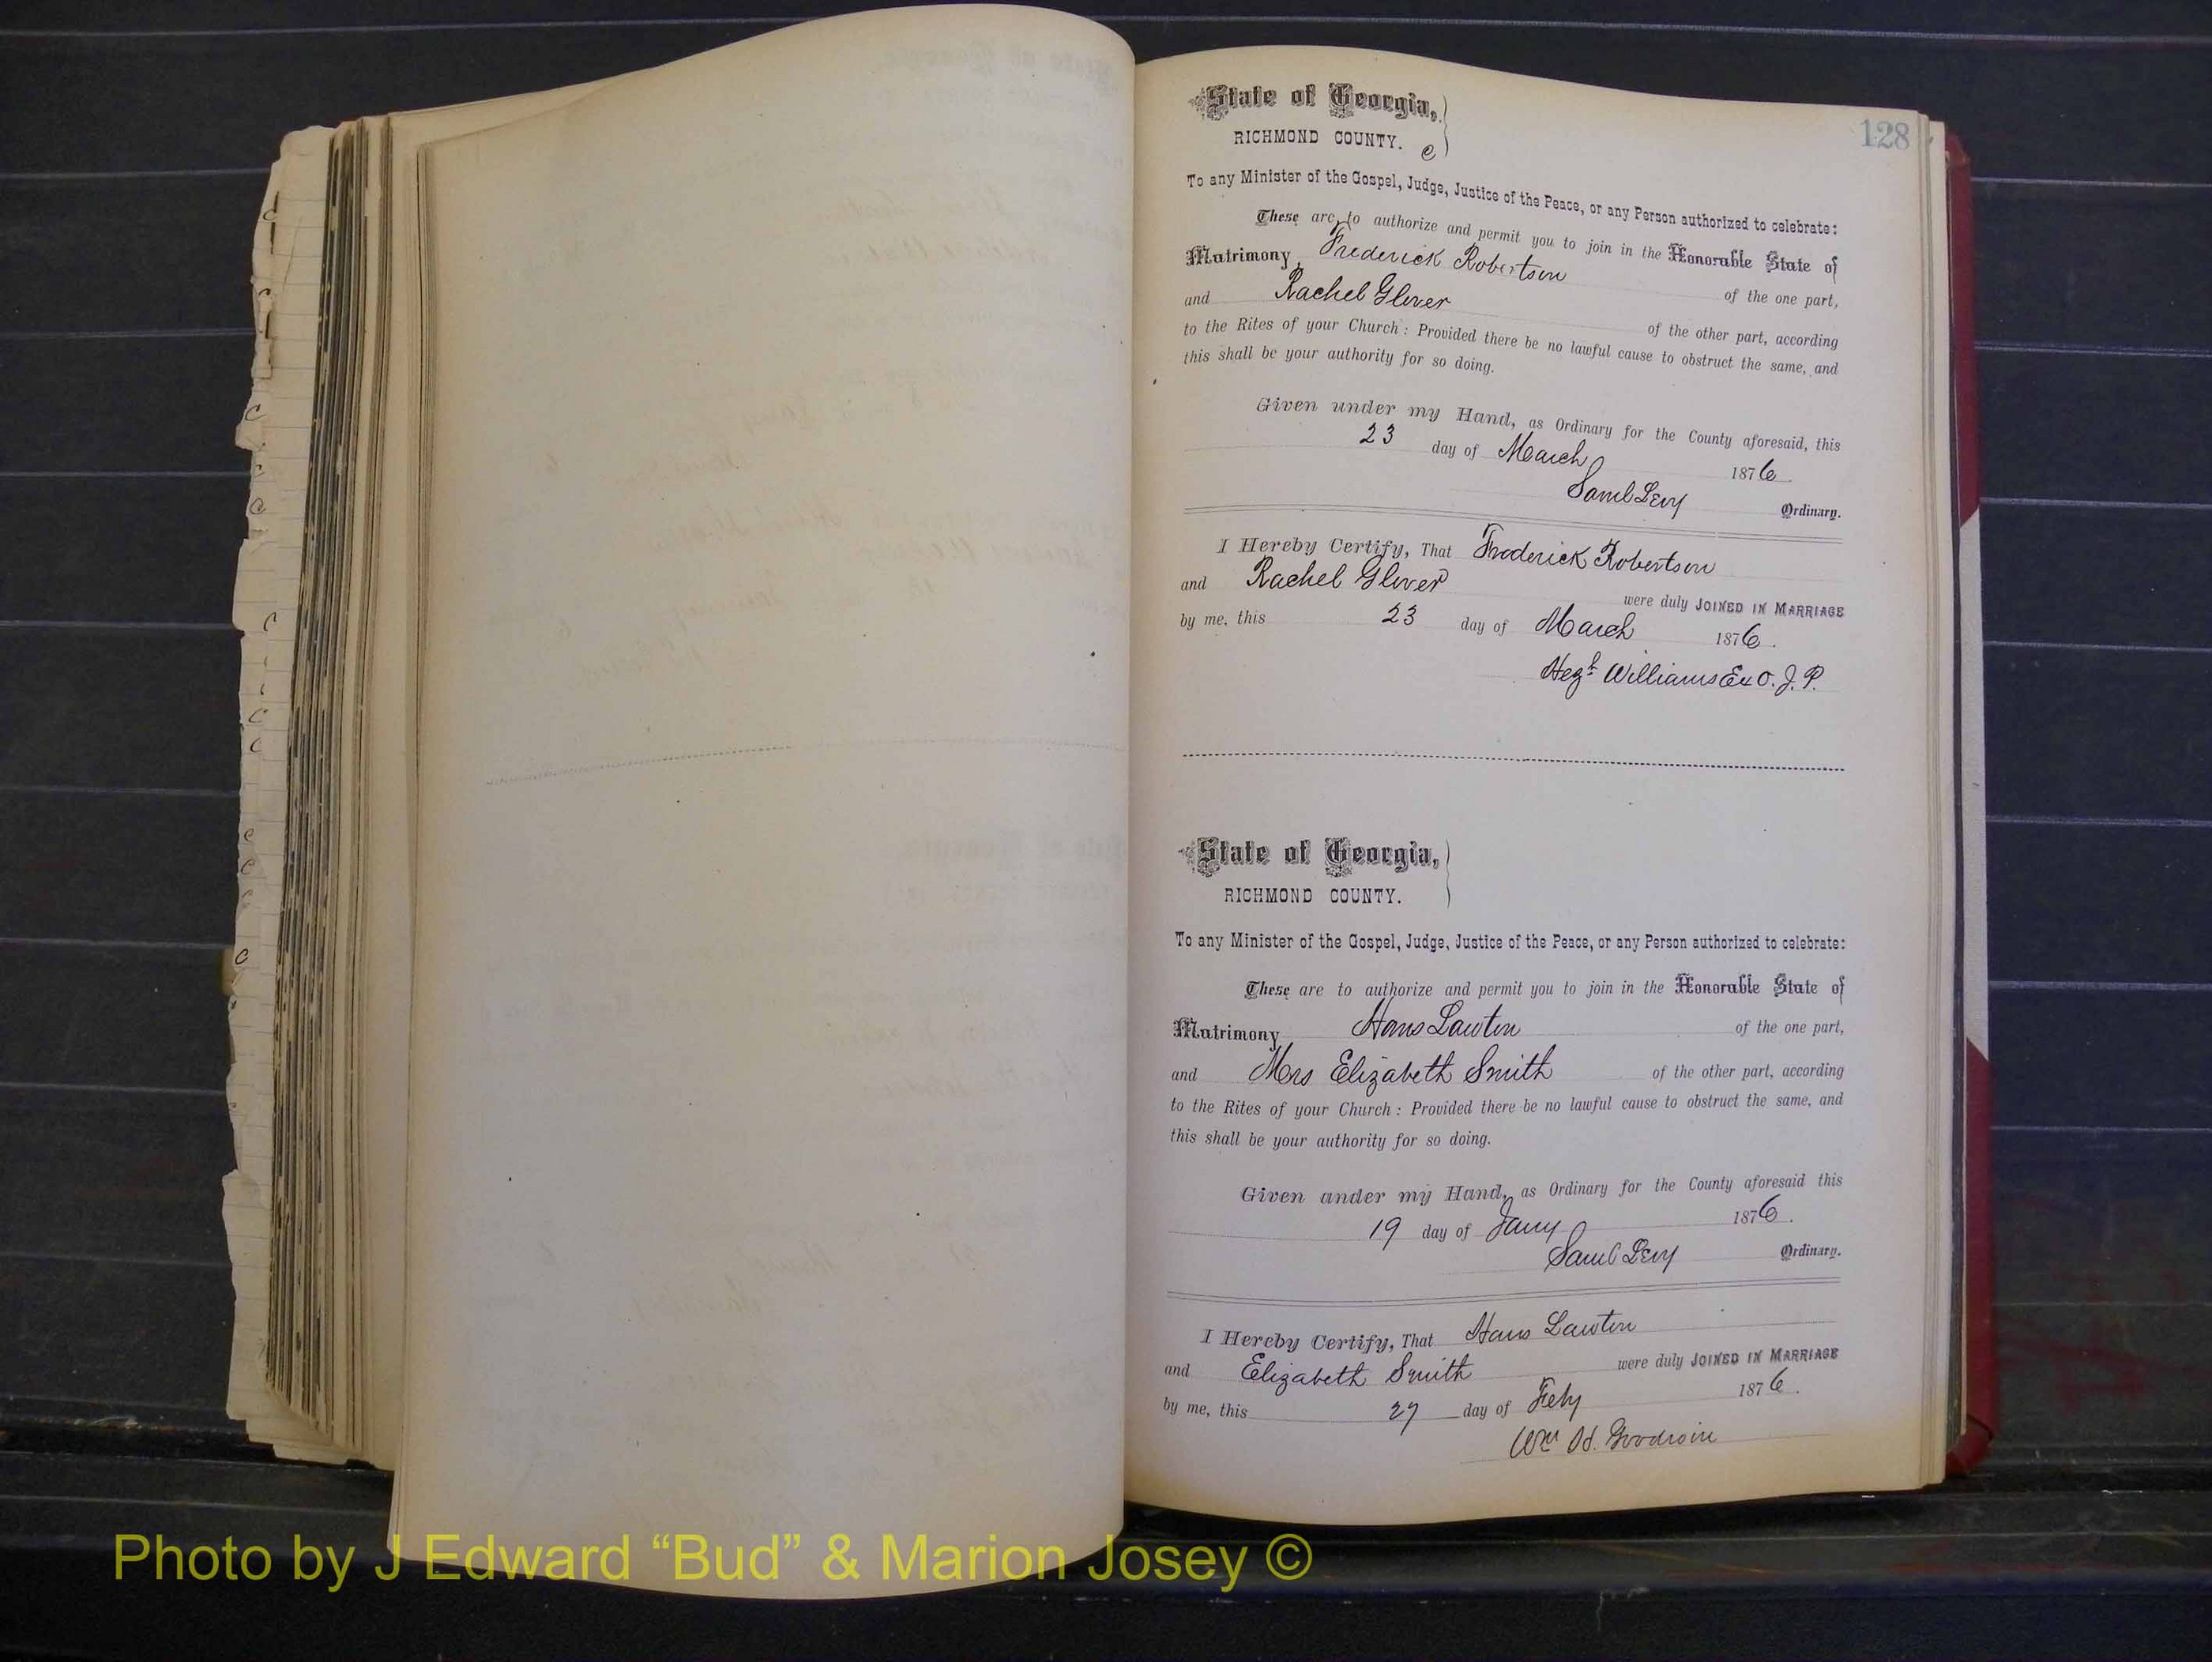 128
State of Georgia,
RICHMOND COUNTY. C
To any Minister of the Gospel, Judge, Justice of the Peace, or any Person authorized to celebrate:
These are to authorize and permit you to join in the Honorable State of
Matrimony Frederick Robertson of the one part,
and Rachel Glover of the other part, according
to the Rites of your Church: Provided there be no lawful cause to obstruct the same, and
this shall be your authority for so doing.
Given under my Hand, as Ordinary for the County aforesaid, this
23 day of March 1876
Saml Levy Ordinary.
I Hereby Certify, That Frederick Robertson
and Rachel Glover were duly JOINED IN MARRIAGE
by me, this 23 day of March 1876.
Hezh Williams Ex O. J. P.
State of Georgia,
RICHMOND COUNTY.
To any Minister of the Gospel, Judge, Justice of the Peace, or any Person authorized to celebrate:
These are to authorize and permit you to join in the Honorable State of
Matrimony Hans Lawton of the one part,
and Mrs Elizabeth Smith of the other part, according
to the Rites of your Church: Provided there be no lawful cause to obstruct the same, and
this shall be your authority for so doing.
Given under my Hand, as Ordinary for the County aforesaid this
19 day of Jany 1876.
Saml Levy Ordinary.
I Hereby Certify, That Hans Lawton
and Elizabeth Smith were duly JOINED IN MARRIAGE
by me, this 27 day of Feby 1876.
Wm H. Goodwin
Photo by J Edward “Bud” & Marion Josey ©